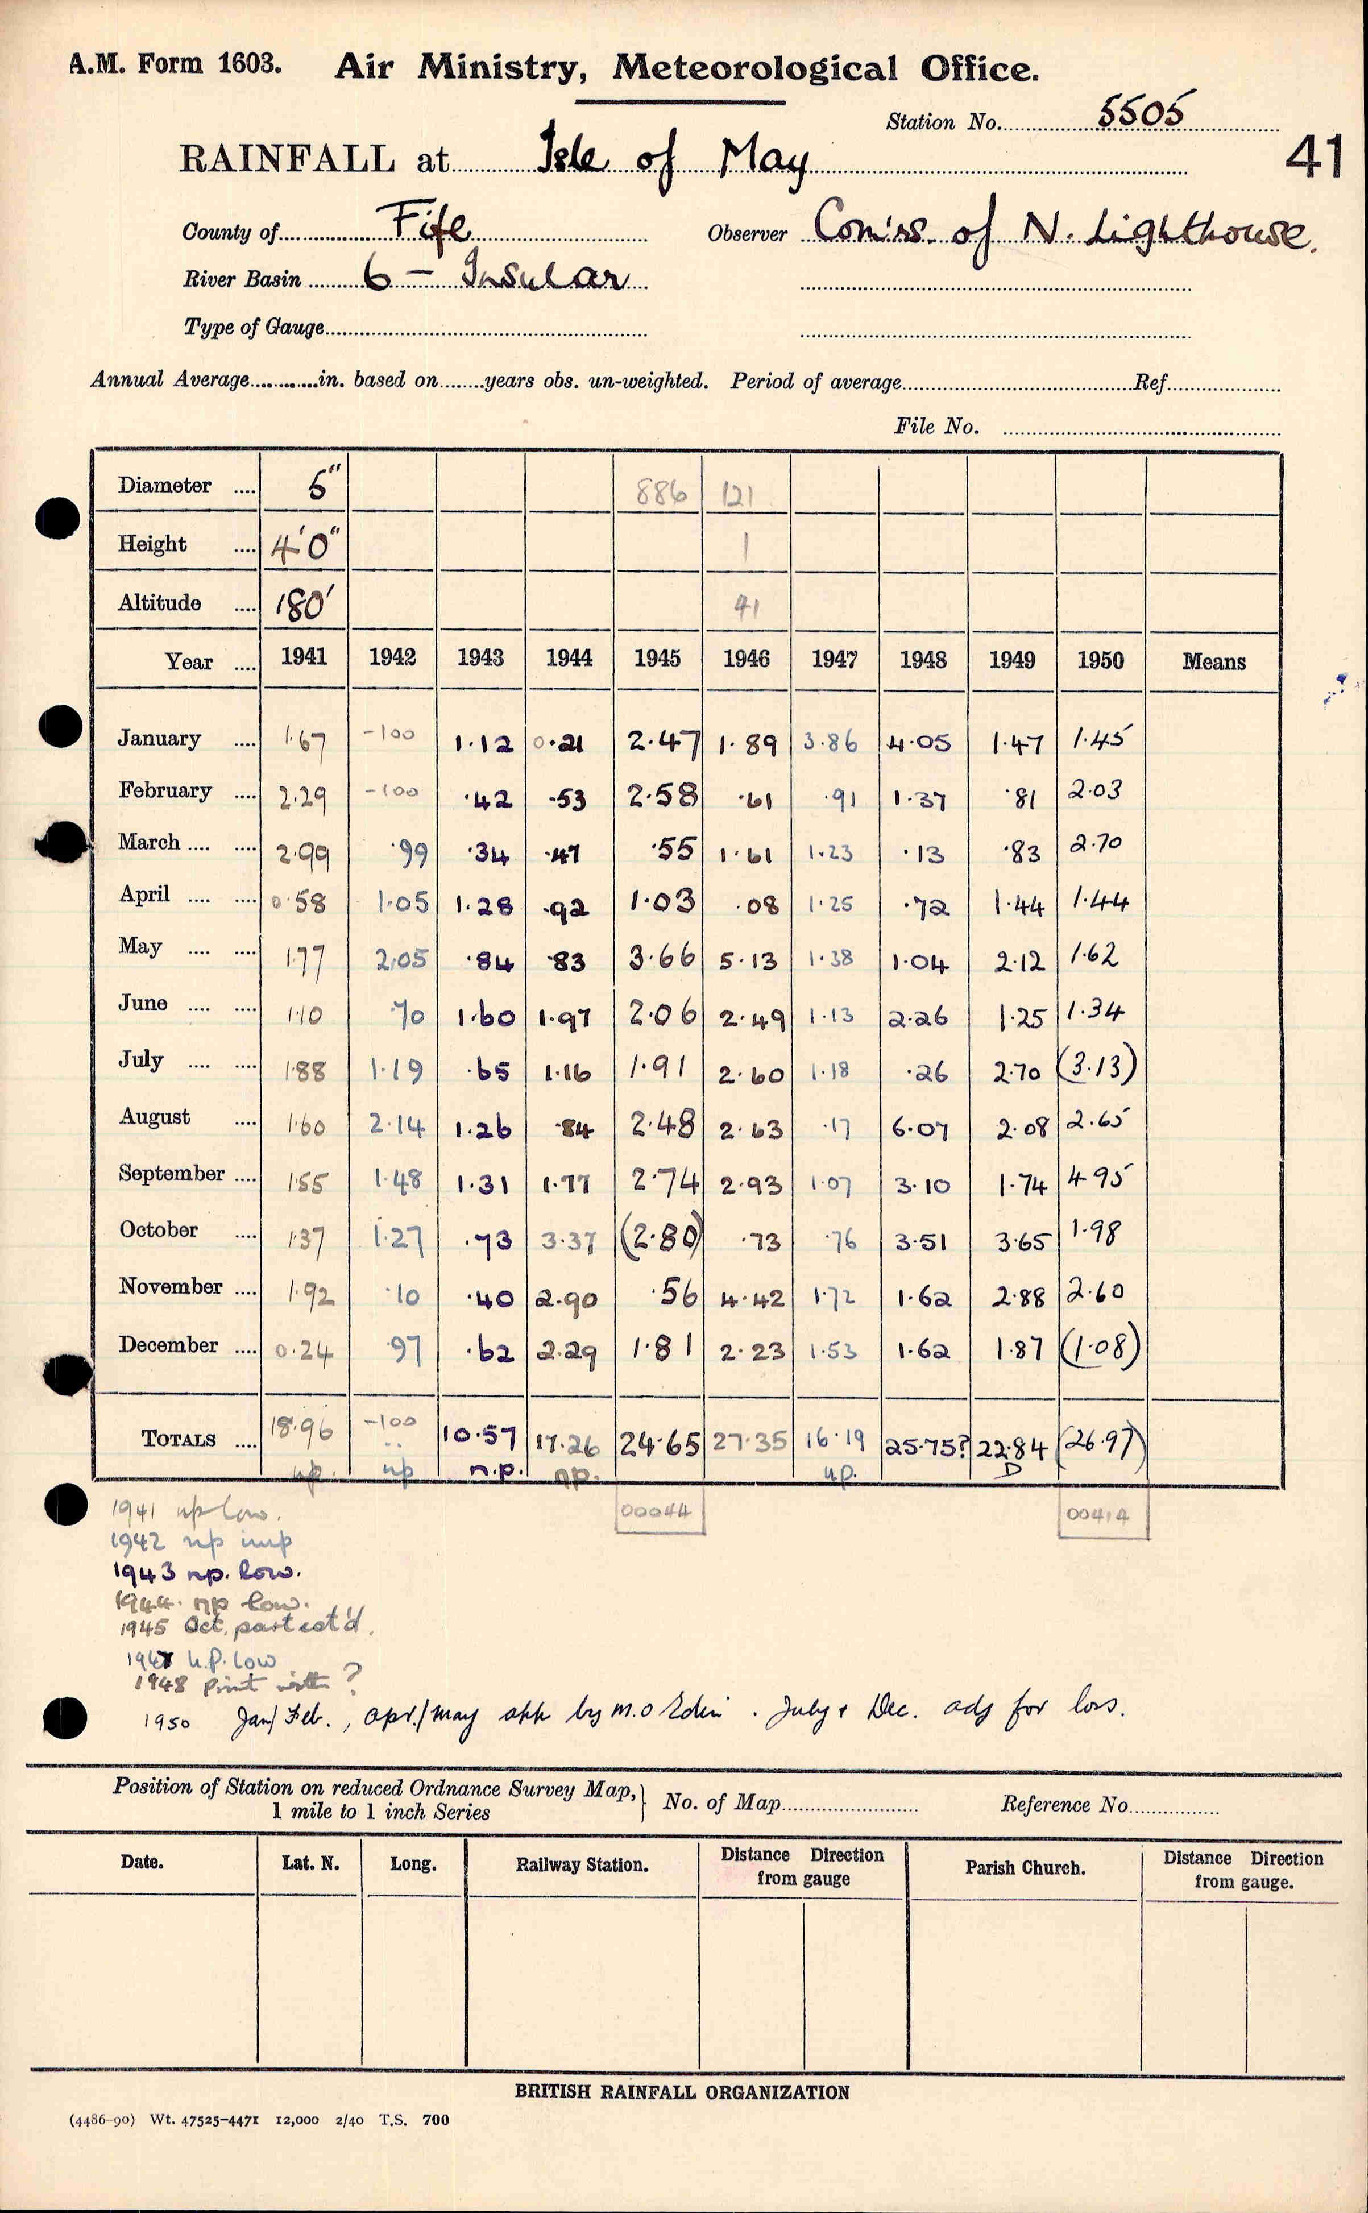 A.M. Form 1603. Air Ministry, Meteorological Office.
Station No. 5505
41
RAINFALL at Isle of May
County of Fife Observer Com'rs. of N. Lighthouse.
River Basin 6 – Insular
Type of Gauge
Annual Average in. based on years obs. un-weighted. Period of average Ref
File No.
Diameter 5" 886 121
Height 4'0" 1
Altitude 180' 41
Year 1941 1942 1943 1944 1945 1946 1947 1948 1949 1950 Means
January 1.67 -100 1.12 0.21 2.47 1.89 3.86 4.05 1.47 1.45
February 2.29 -100 .42 .53 2.58 .61 .91 1.37 .81 2.03
March 2.99 .99 .34 .47 .55 1.61 1.23 .13 .83 2.70
April 0.58 1.05 1.28 .92 1.03 .08 1.25 .72 1.44 1.44
May 1.77 2.05 .84 .83 3.66 5.13 1.38 1.04 2.12 1.62
June 1.10 .70 1.60 1.97 2.06 2.49 1.13 2.26 1.25 1.34
July 1.88 1.19 .65 1.16 1.91 2.60 1.18 .26 2.70 (3.13)
August 1.60 2.14 1.26 .84 2.48 2.63 .17 6.07 2.08 2.65
September 1.55 1.48 1.31 1.77 2.74 2.93 1.07 3.10 1.74 4.95
October 1.37 1.27 .73 3.37 (2.80) .73 .76 3.51 3.65 1.98
November 1.92 .10 .40 2.90 .56 4.42 1.72 1.62 2.88 2.60
December 0.24 .97 .62 2.29 1.81 2.23 1.53 1.62 1.87 (1.08)
TOTALS 18.96 -100 10.57 17.26 24.65 27.35 16.19 25.75? 22.84 (26.97)
np. np n.p. np. np. D
00044 00414
1941 np low.
1942 np imp
1943 np. low.
1944. np low.
1945 Oct. part est'd.
1947 n.p. low
1948 print with ?
1950 Jan/Feb., apr./may app by M.O Edin. July & Dec. adj for loss.
Position of Station on reduced Ordnance Survey Map, 1 mile to 1 inch Series No. of Map Reference No.
Date. Lat. N. Long. Railway Station. Distance Direction from gauge Parish Church. Distance Direction from gauge.
BRITISH RAINFALL ORGANIZATION
(4486-90) Wt. 47525-4471 12,000 2/40 T.S. 700